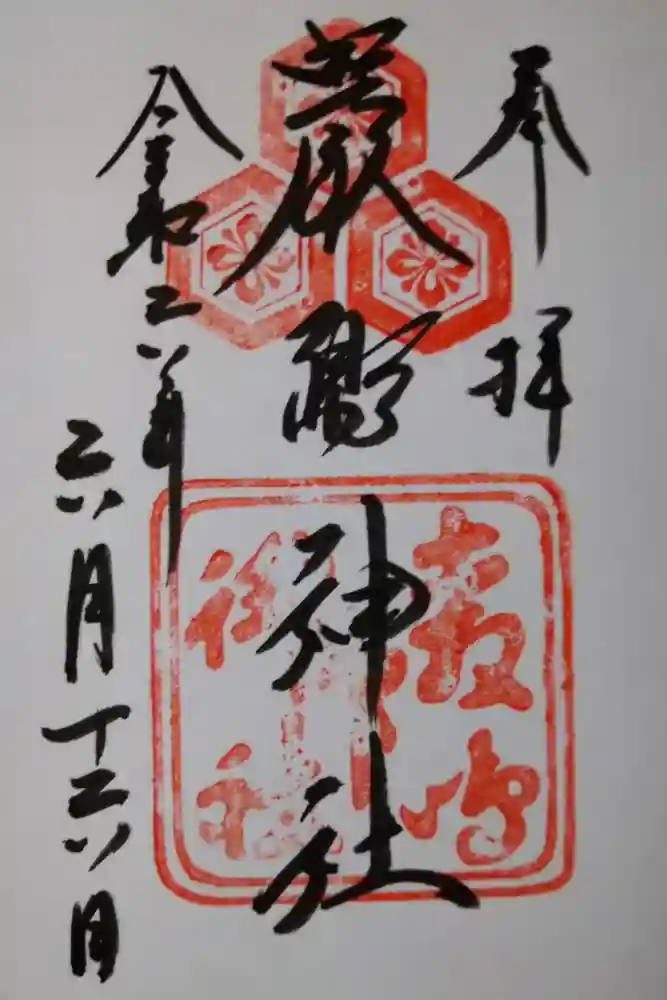 奉拝
嚴嶋神社
令和六年
六月十六日